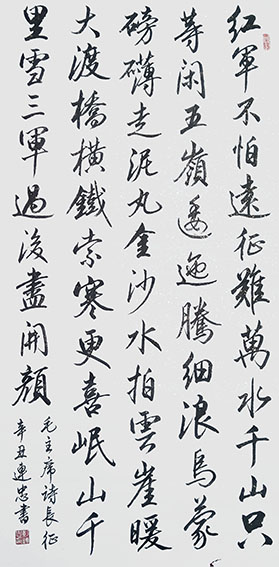 红軍不怕遠征難萬水千山只
等闲五嶺逶迤騰细浪烏蒙
磅礴走泥丸金沙水拍雲崖暖
大渡橋横鐵索寒更喜岷山千
里雪三軍過後盡開顔
毛主席诗長征
辛丑連忠書